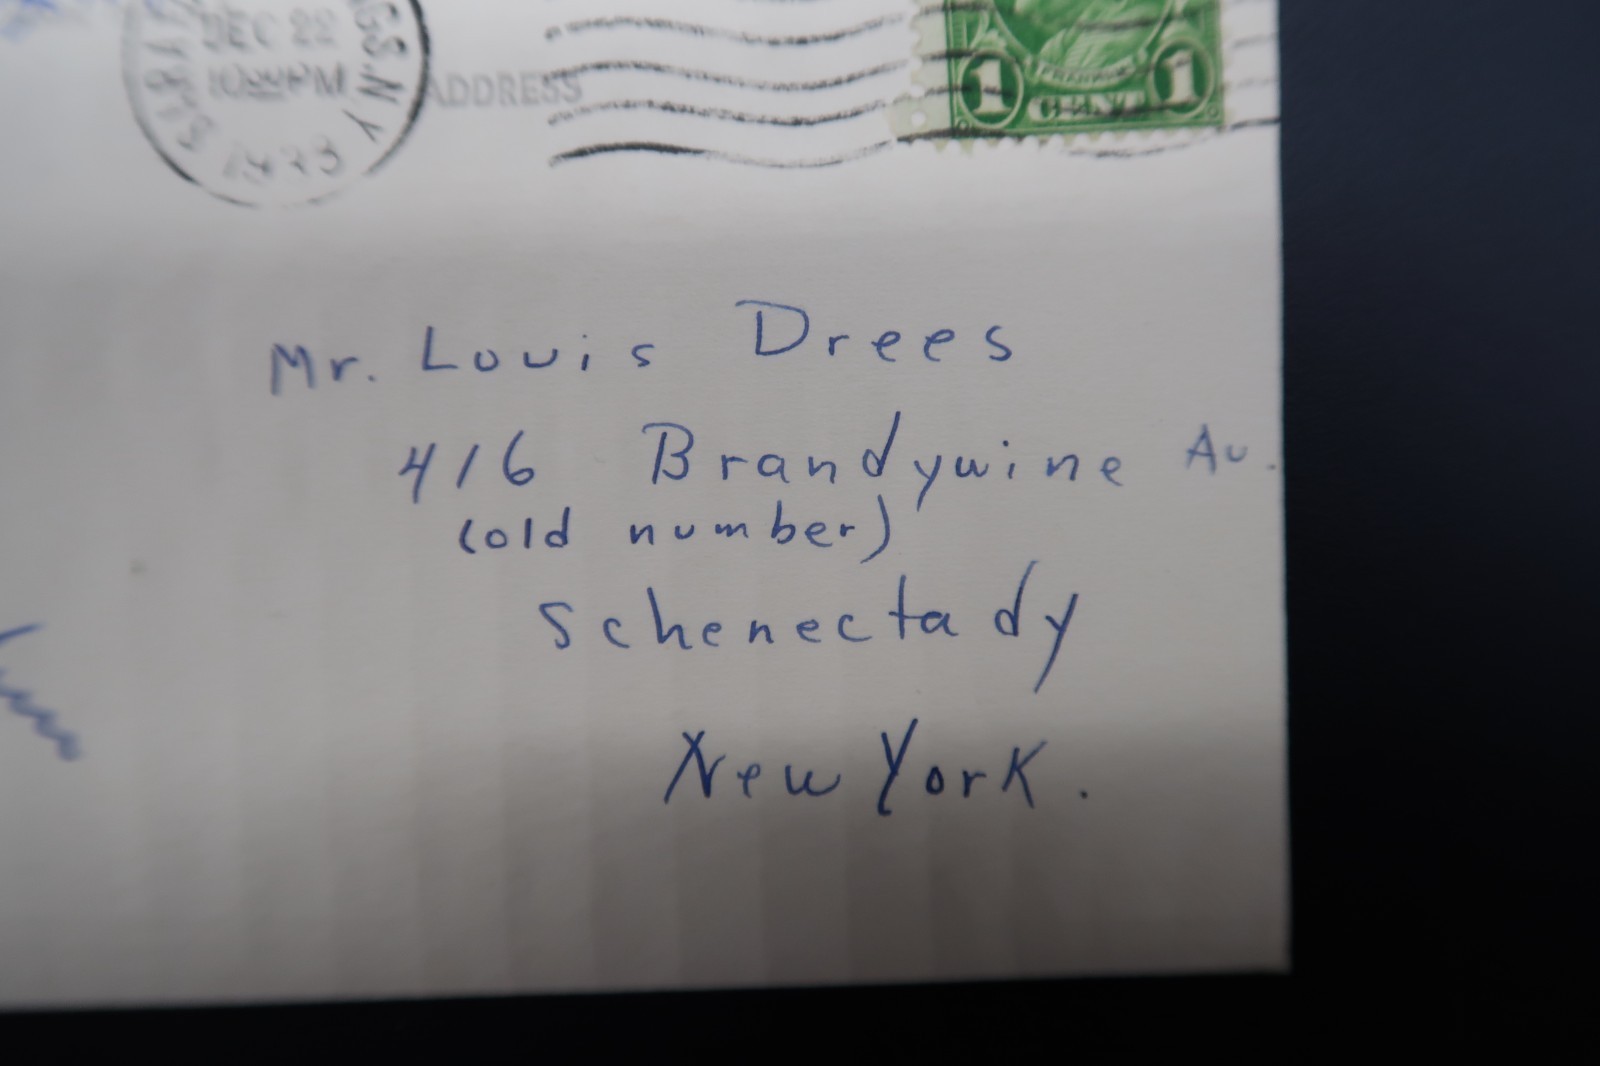 DEC 22
10 PM
GS. N.Y.
ADDRESS
FRANKLIN
1 CENT 1
Mr. Louis Drees
416 Brandywine Av.
(old number)
Schenectady
New York.